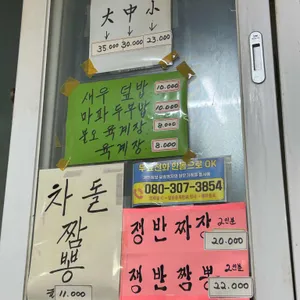 大 中 小
35.000 30.000 23.000
새우 덮밥 10.000
마파두부밥 10.000
육계장 9.000
육계장 8.000
080-307-3854
차돌
짬
뽕
11.000
쟁반짜장 2인분
20.000
쟁반짬뽕 2인분
22.000